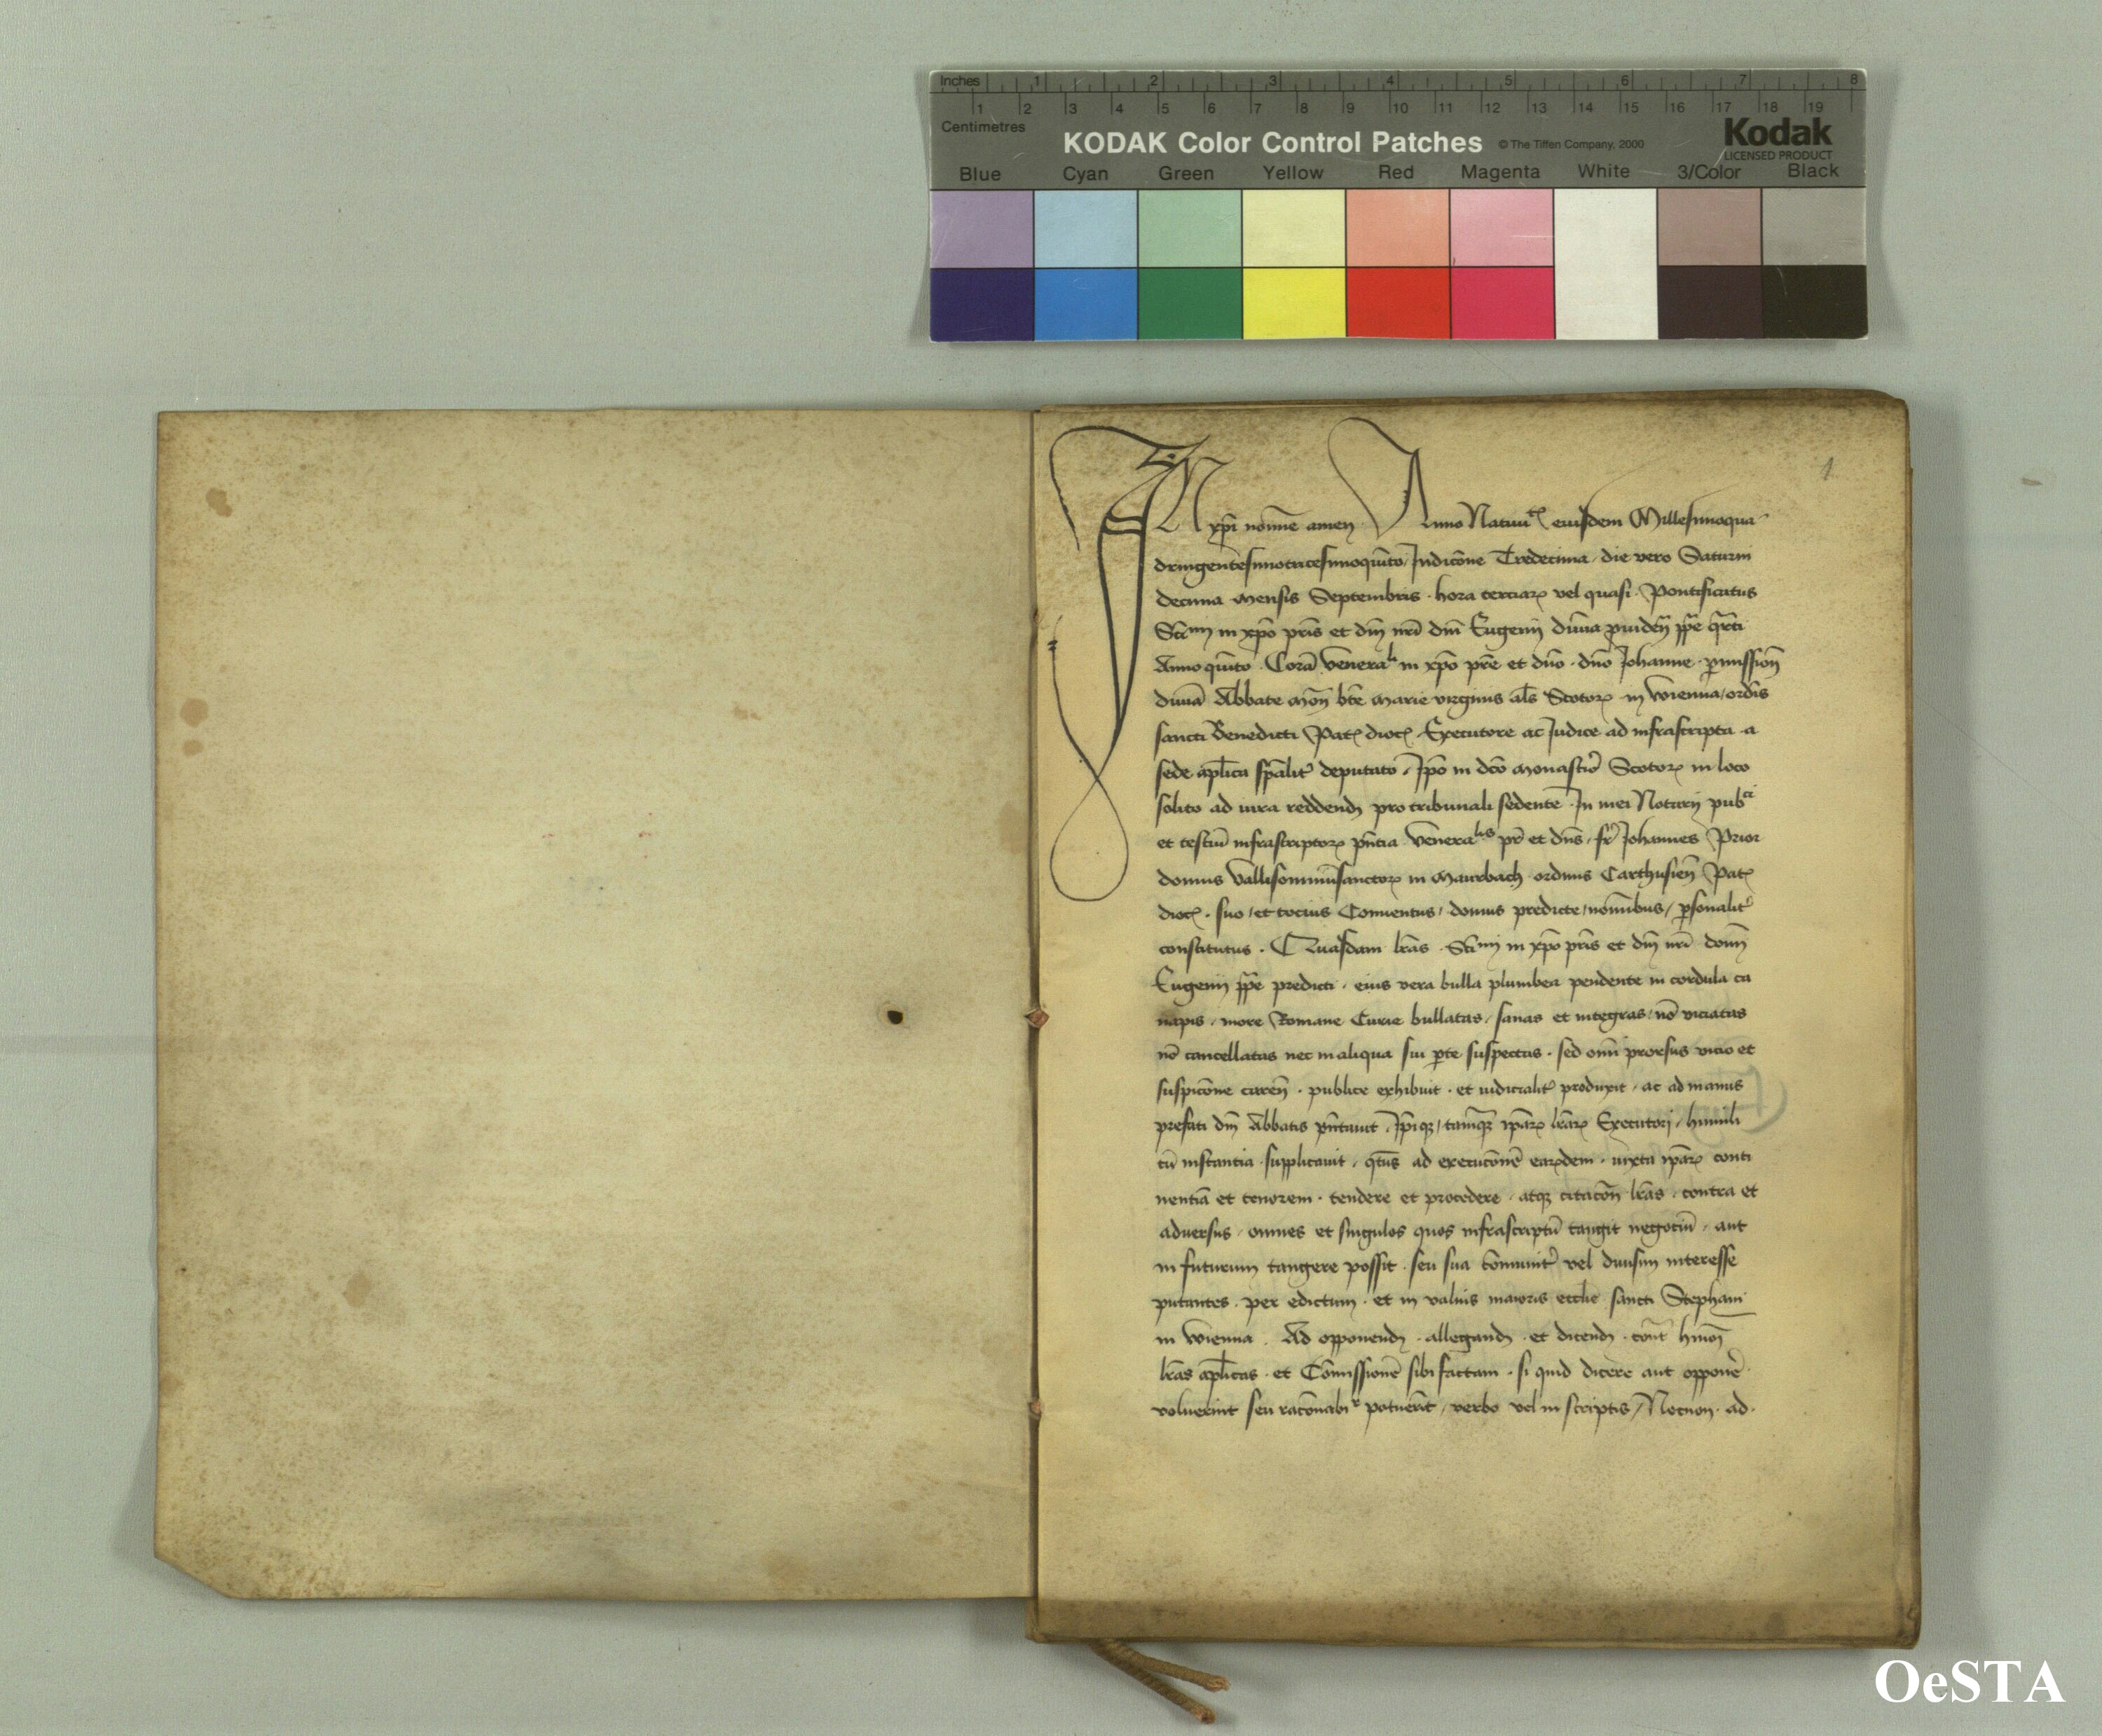 Inches 1 2 3 4 5 6 7 8
1 2 3 4 5 6 7 8 9 10 11 12 13 14 15 16 17 18 19
Centimetres
KODAK Color Control Patches © The Tiffen Company, 2000 Kodak
LICENSED PRODUCT
Blue Cyan Green Yellow Red Magenta White 3/Color Black
1
IN xp̄i nōīe amen Anno Natiuit̄ eiusdem Millesimoqua
dringentesimotricesimoquīto Indicōne Tredecima die vero Saturni
decima mensis Septembris hora terciarꝝ vel quasi Pontificatus
Scīmi in xp̄o pr̄is et dn̄i nr̄i dn̄i Eugenij diuīa ꝓuidēn pp̄e qrti
Anno quīto Corā venerali in xp̄o pr̄e et dn̄o dn̄o Johanne ꝑmissiōn
diuīa Abbate mōn btē Marie virginis als̄ Scotorꝝ in wienna ordīs
sancti Benedicti Pat̄ dioc̄ Executore ac Judice ad infrascripta a
sede ap̄lica sp̄alit̄ deputato Ip̄o in dc̄o monastio Scotorꝝ in loco
solito ad iura reddend̄ pro tribunali sedente In mei Notarij pubci
et testiū infrascriptorꝝ pn̄tia veneralis pr̄ et dn̄s fr̄ Johannes Prior
domus vallisomniūsanctorꝝ in Maurbach ordinis Carthusieñ Pat̄
dioc̄ suo et tocius Conuentus domus predicte nōībus ꝑsonalit̄
constitutus Quasdam lr̄as Scīmi in xp̄o pr̄is et dn̄i nr̄i domī
Eugenij pp̄e predicti eius vera bulla plumbea pendente in cordula ca
napis more Romane Curie bullatas sanas et integras nō viciatas
nō cancellatas nec in aliqua sui ꝑte suspectas sed omī prorsus vicio et
suspicōne careñ publice exhibuit et iudicialit̄ produxit ac ad manus
prefati dn̄i Abbatis pn̄tauit Ip̄iqꝫ tamqꝫ ip̄arꝝ lr̄arꝝ Executori humili
cū instantia supplicauit qt̄us ad execucōnē earꝝdem iuxta ip̄arꝝ conti
nentiā et tenorem tendere et procedere atqꝫ citacōn lr̄as contra et
aduersus omnes et singulos quos infrascriptū tangit negociū aut
in futurum tangere possit seu sua cōmunit̄ vel diuisim interesse
putantes per edictum et in valuis maioris eccl̄ie sancti Stephani
in wienna Ad opponend̄ allegand̄ et dicend̄ cont̄ hmōi
lr̄as ap̄licas et Cōmissionē sibi factam si quid dicere aut opponē
voluerint seu racōnabir potuerīt verbo vel in scriptis Necnon ad
OeSTA